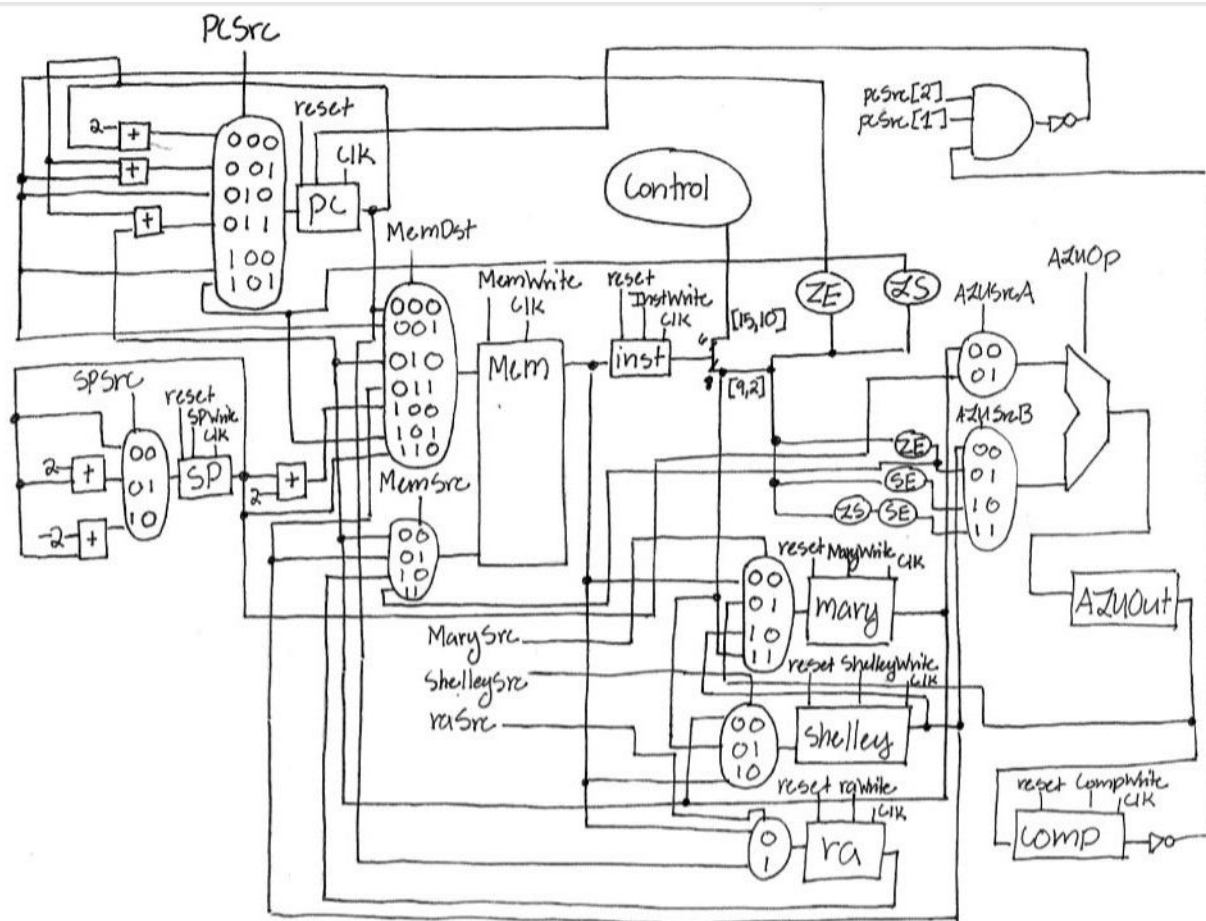 PCSrc
pcSrc[2]
pcSrc[1]
reset
clk
2
+
+
+
000
001
010
011
100
101
PC
Control
MemDst
000
001
010
011
100
101
110
MemWrite
clk
Mem
reset
InstWrite
clk
inst
6
8
[15,10]
[9,2]
ZE
ZS
ALUSrcA
00
01
ALUOp
ALUSrcB
00
01
10
11
ZE
SE
ZS
SE
SPSrc
reset
SPWrite
clk
00
01
10
SP
2
+
-2
+
2
+
MemSrc
00
01
10
11
MarySrc
ShelleySrc
raSrc
00
01
10
11
reset MaryWrite
clk
mary
reset ShelleyWrite
clk
00
01
10
shelley
reset raWrite
clk
0
1
ra
ALUOut
reset CompWrite
clk
comp